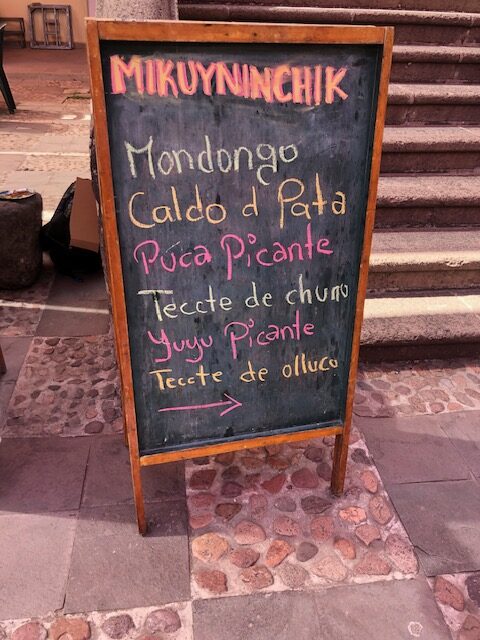 MIKUYNINCHIK
Mondongo
Caldo d Pata
Puca Picante
Teccte de chuno
Yuyu Picante
Teccte de olluco